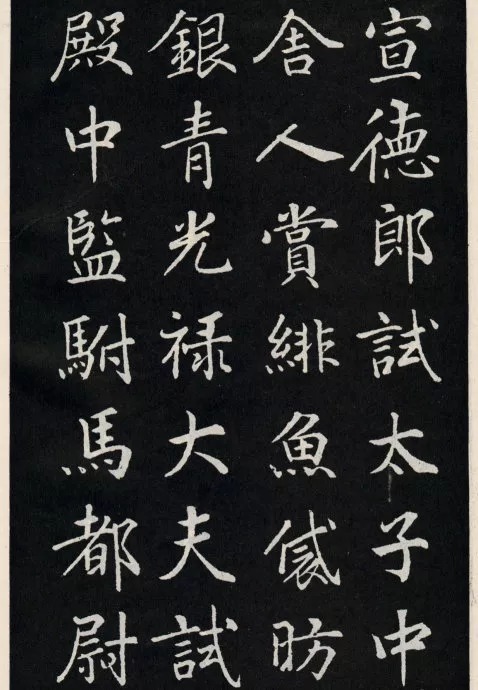 宣德郎試太子中
舍人賞緋魚袋昉
銀青光禄大夫試
殿中監駙馬都尉